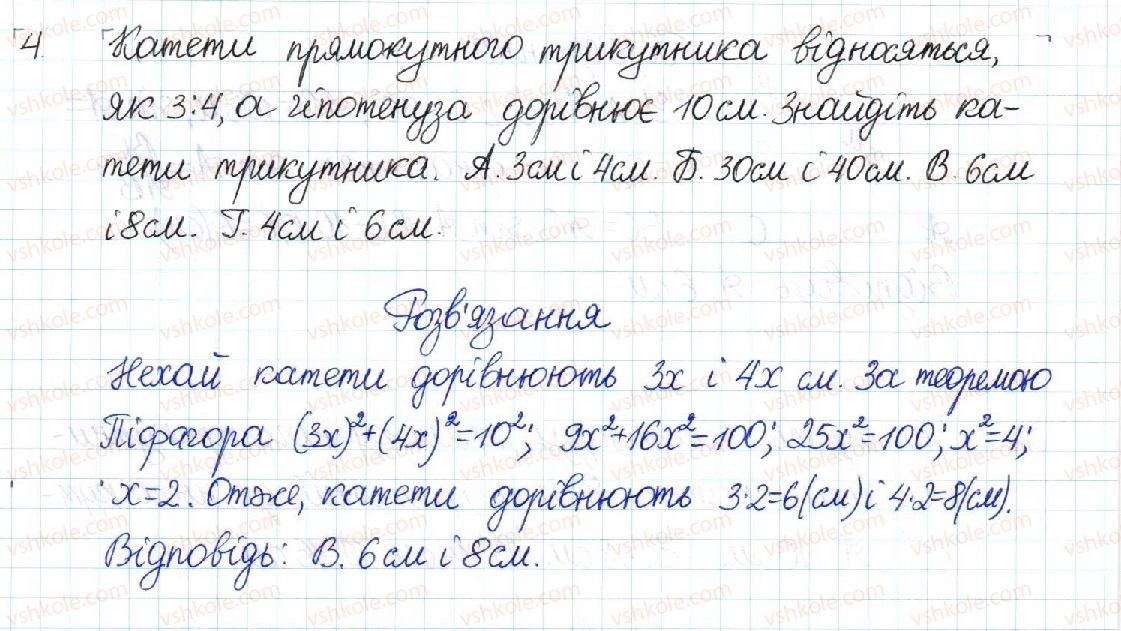 4. Катети прямокутного трикутника відносяться,
як 3:4, а гіпотенуза дорівнює 10 см. Знайдіть ка-
тети трикутника. А. 3см і 4см. Б. 30см і 40см. В. 6см
і 8см. Г. 4см і 6см.
Розв'язання
Нехай катети дорівнюють 3x і 4x см. За теоремою
Піфагора (3x)²+(4x)²=10²; 9x²+16x²=100; 25x²=100; x²=4;
x=2. Отже, катети дорівнюють 3·2=6(см) і 4·2=8(см).
Відповідь: В. 6см і 8см.
vshkole.com